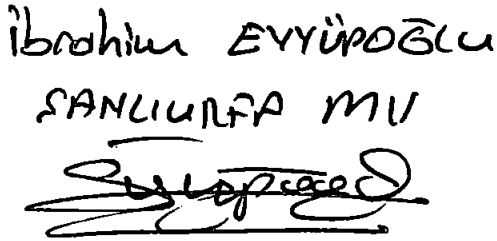 İbrahim EYYÜPOĞLU
ŞANLIURFA MV